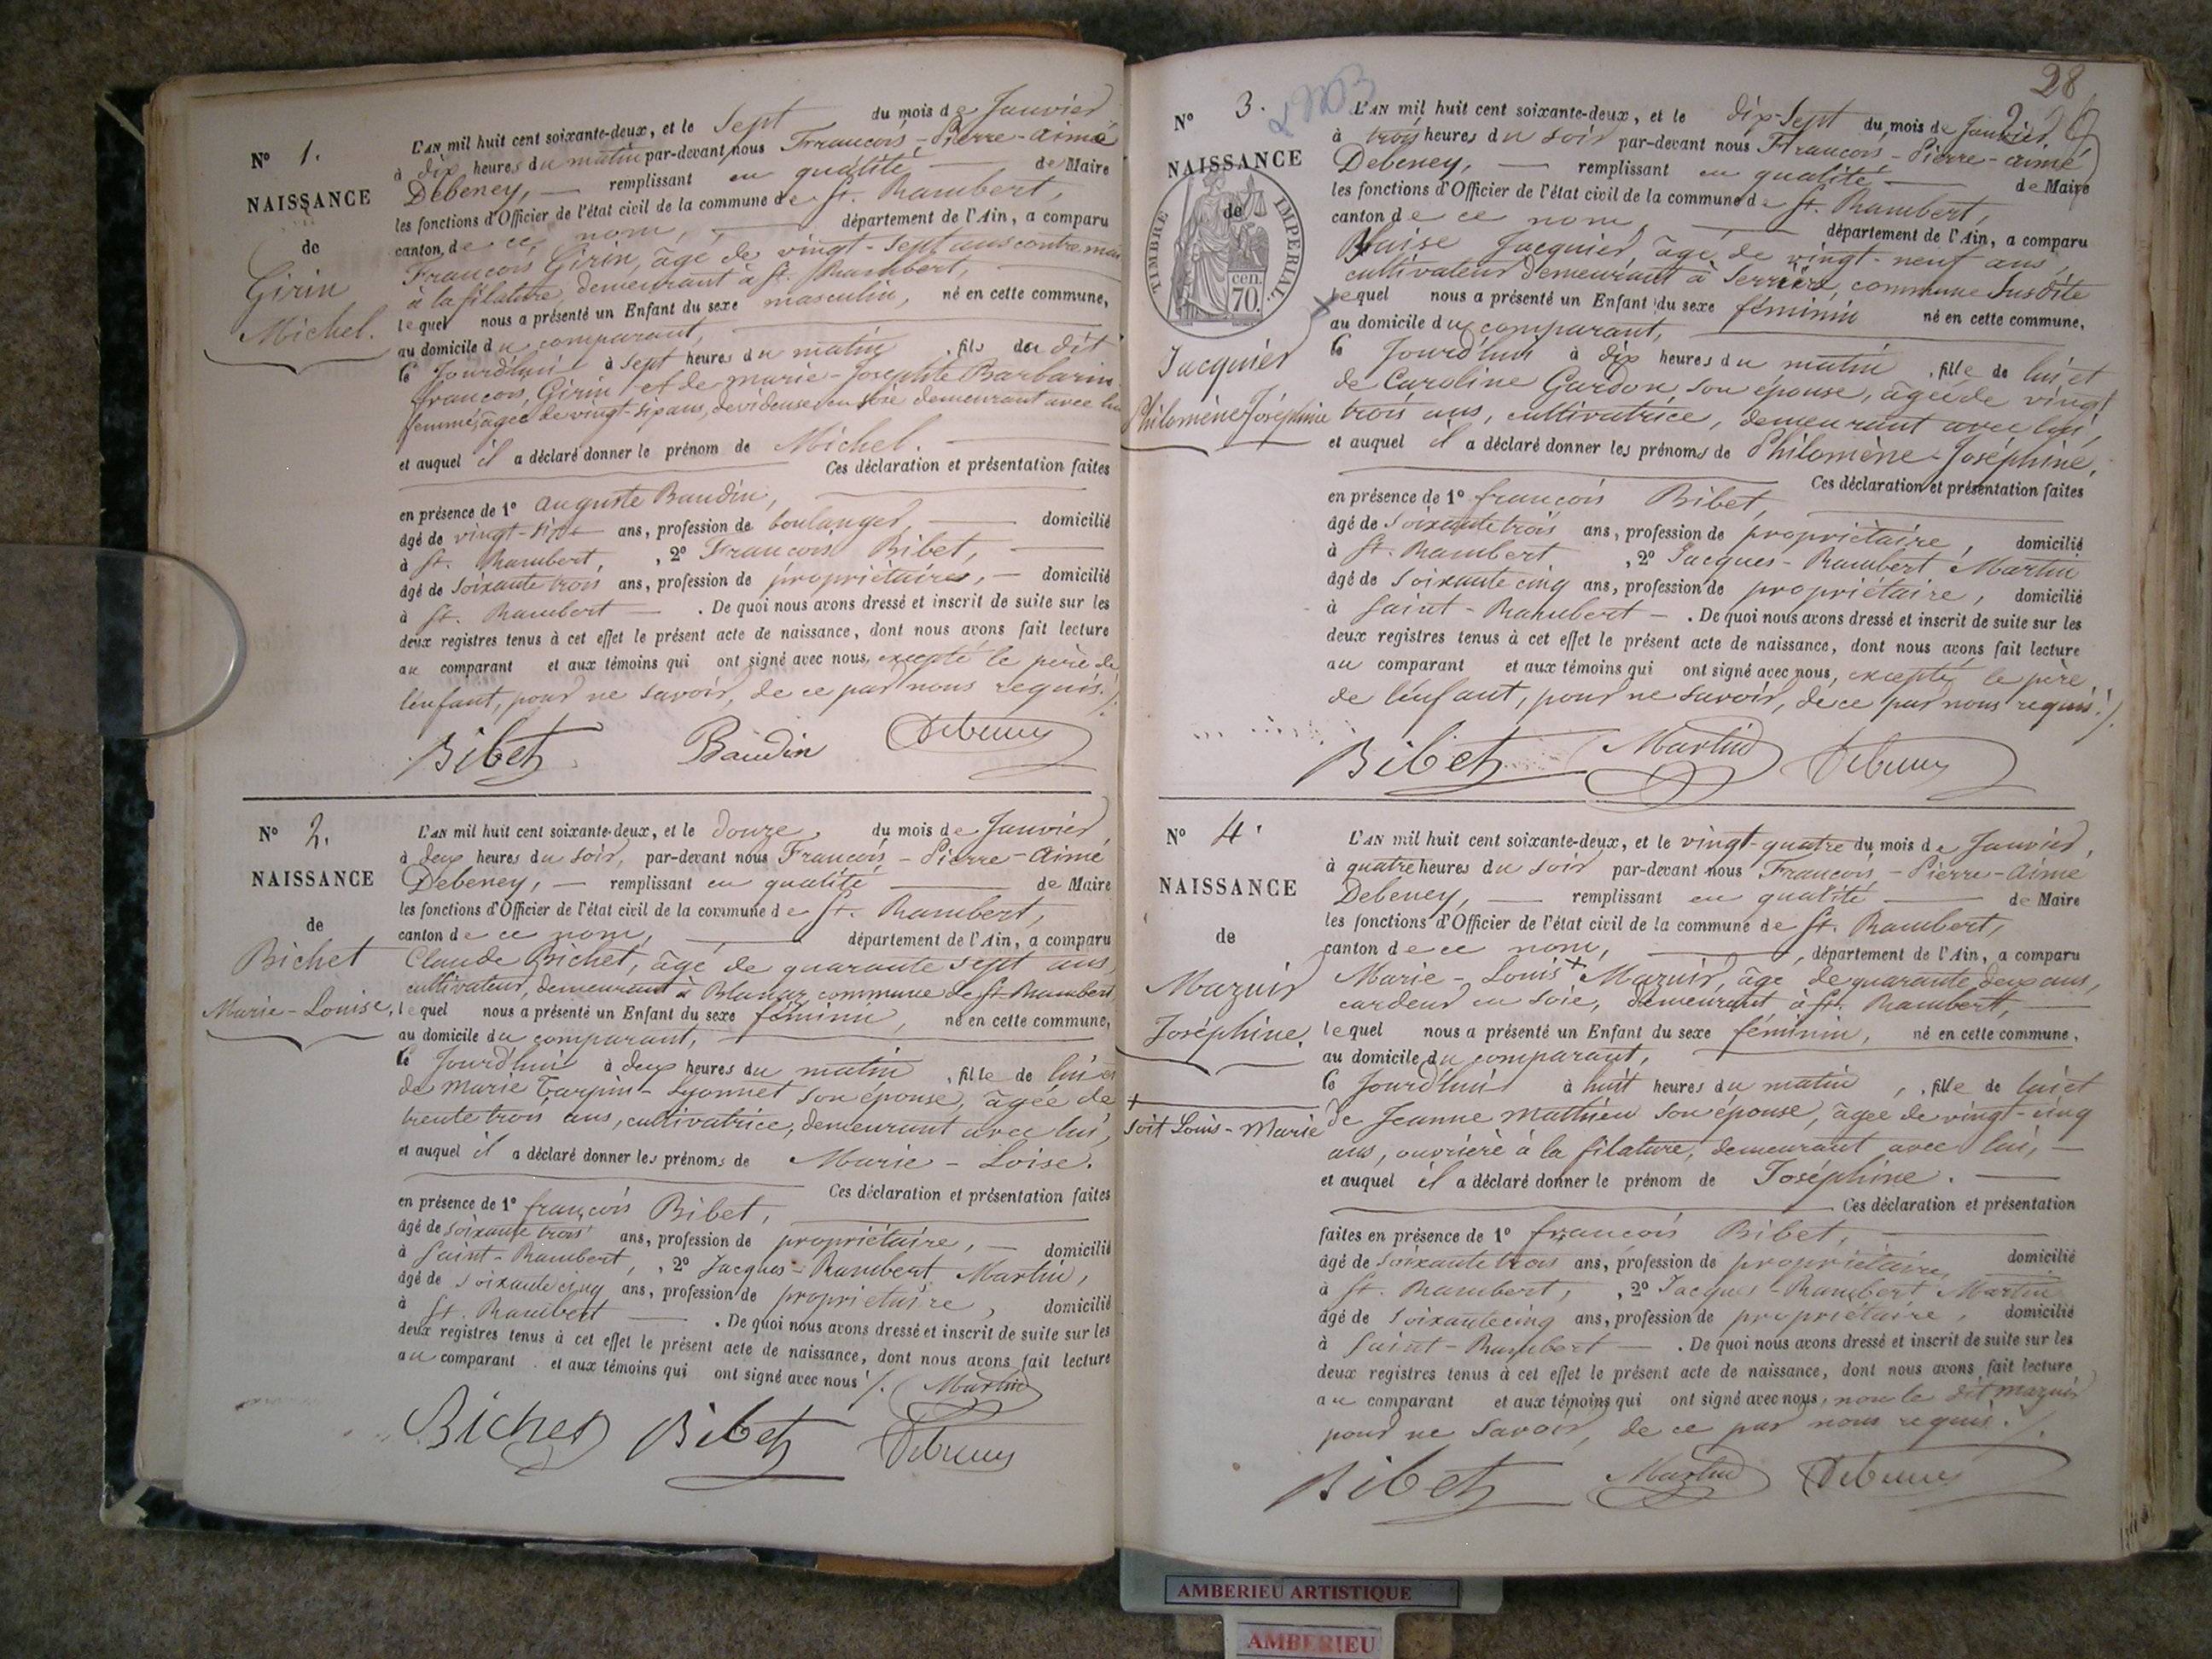 N° 1.
NAISSANCE
de
Girin
Michel.
L'AN mil huit cent soixante-deux, et le Sept du mois de Janvier
à dix heures du matin par-devant nous François-Pierre-aimé
Debeney, — remplissant en qualité — de Maire
les fonctions d'Officier de l'état civil de la commune de St. Rambert,
canton de ce nom, — département de l'Ain, a comparu
François Girin, âgé de vingt-sept ans contre mai
à la filature, demeurant à St. Rambert,
lequel nous a présenté un Enfant du sexe masculin, né en cette commune,
au domicile du comparant,
ce Jourd'hui à sept heures du matin, fils du dit
françois, Girin et de marie-Josephte Barbarin
femme, âgée de vingt-six ans, devideuse en soie demeurant avec lui
et auquel il a déclaré donner le prénom de Michel.
Ces déclaration et présentation faites
en présence de 1° auguste Baudin,
âgé de vingt-six ans, profession de boulanger, — domicilié
à St. Rambert, , 2° François Bibet,
âgé de soixante trois ans, profession de propriétaires, — domicilié
à St. Rambert — . De quoi nous avons dressé et inscrit de suite sur les
deux registres tenus à cet effet le présent acte de naissance, dont nous avons fait lecture
au comparant et aux témoins qui ont signé avec nous, excepté le père de
l'enfant, pour ne savoir, de ce par nous requis./.
Bibet Baudin Debeney
N° 2.
NAISSANCE
de
Bichet
Marie-Louise,
L'AN mil huit cent soixante-deux, et le douze, du mois de Janvier,
à deux heures du soir, par-devant nous François-Pierre-Aimé
Debeney, — remplissant en qualité — de Maire
les fonctions d'Officier de l'état civil de la commune de St. Rambert,
canton de ce nom, — département de l'Ain, a comparu
Claude Bichet, âgé de quarante sept ans,
cultivateur, demeurant à Blanaz commune de St Rambert
lequel nous a présenté un Enfant du sexe féminin, né en cette commune,
au domicile du comparant,
ce Jourd'hui à deux heures du matin, fille de lui et
de Marie Tarpin-Lyonnet son épouse, âgée de
trente trois ans, cultivatrice, demeurant avec lui,
et auquel il a déclaré donner les prénoms de Marie-Loise.
Ces déclaration et présentation faites
en présence de 1° françois Bibet,
âgé de soixante trois ans, profession de propriétaire, — domicilié
à Saint-Rambert, , 2° Jacques-Rambert Martin,
âgé de soixante cinq ans, profession de propriétaire, domicilié
à St. Rambert — . De quoi nous avons dressé et inscrit de suite sur les
deux registres tenus à cet effet le présent acte de naissance, dont nous avons fait lecture
au comparant et aux témoins qui ont signé avec nous./. Martin
Bichet Bibet Debeney
28
N° 3.
NAISSANCE
de
TIMBRE IMPERIAL.
70. cen
Jacquier
Philomène Joséphine
L'AN mil huit cent soixante-deux, et le dix-Sept du mois de Janvier,
à trois heures du soir par-devant nous François-Pierre-aimé
Debeney, — remplissant en qualité — de Maire
les fonctions d'Officier de l'état civil de la commune de St. Rambert,
canton de ce nom, — département de l'Ain, a comparu
Blaise Jacquier, âgé de vingt-neuf ans,
cultivateur demeurant à Serrière, commune Susdite
lequel nous a présenté un Enfant du sexe féminin né en cette commune,
au domicile du comparant,
ce Jourd'hui à dix heures du matin, fille de lui et
de Caroline Gardon, son épouse, âgée de vingt
trois ans, cultivatrice, demeurant avec lui,
et auquel il a déclaré donner les prénoms de Philomène-Joséphine,
Ces déclaration et présentation faites
en présence de 1° françois Bibet,
âgé de Soixante trois ans, profession de propriétaire, domicilié
à St. Rambert , 2° Jacques-Rambert Martin
âgé de soixante cinq ans, profession de propriétaire, domicilié
à Saint-Rambert — . De quoi nous avons dressé et inscrit de suite sur les
deux registres tenus à cet effet le présent acte de naissance, dont nous avons fait lecture
au comparant et aux témoins qui ont signé avec nous, excepté le père
de l'enfant, pour ne savoir, de ce par nous requis./.
Bibet Martin Debeney
N° 4.
NAISSANCE
de
Mazuir
Joséphine,
+
soit Louis-Marie
L'AN mil huit cent soixante-deux, et le vingt-quatre du mois de Janvier,
à quatre heures du soir par-devant nous François-Pierre-Aimé
Debeney, — remplissant en qualité — de Maire
les fonctions d'Officier de l'état civil de la commune de St. Rambert,
canton de ce nom, — , département de l'Ain, a comparu
Marie-Louis + Mazuir, âgé de quarante deux ans,
cardeur en soie, demeurant à St. Rambert,
lequel nous a présenté un Enfant du sexe féminin, né en cette commune,
au domicile du comparant,
ce Jourd'hui à huit heures du matin, , fille de lui et
de Jeanne Mathieu son épouse, âgée de vingt-cinq
ans, ouvrière à la filature, demeurant avec lui,
et auquel il a déclaré donner le prénom de Joséphine.
Ces déclaration et présentation
faites en présence de 1° françois Bibet,
âgé de soixante trois ans, profession de propriétaire, domicilié
à St. Rambert, , 2° Jacques-Rambert Martin
âgé de soixante cinq ans, profession de propriétaire, domicilié
à Saint-Rambert — . De quoi nous avons dressé et inscrit de suite sur les
deux registres tenus à cet effet le présent acte de naissance, dont nous avons fait lecture
au comparant et aux témoins qui ont signé avec nous, non le dit Mazuir
pour ne savoir, de ce par nous requis./.
Bibet Martin Debeney
AMBERIEU ARTISTIQUE
AMBERIEU